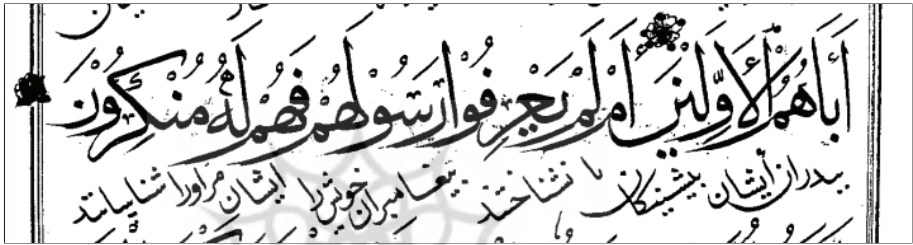 أَبَاءَهُمُ الْأَوَّلِينَ أَمْ لَمْ يَعْرِفُوا رَسُولَهُمْ فَهُمْ لَهُ مُنْكِرُونَ
پدران ایشان پیشینگان یا نشناختند پیغامبران خویش را ایشان مر او را ناشناسانند